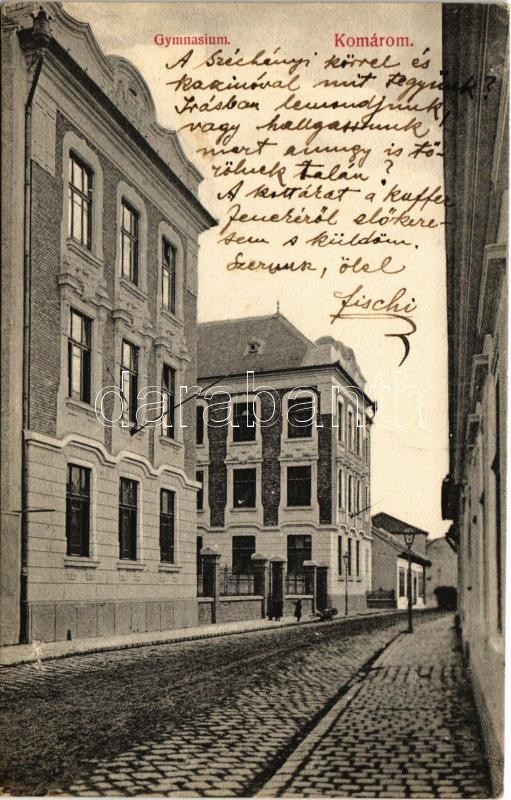 Gymnasium. Komárom.
A Széchényi körrel és
kaszinóval mit tegyünk?
Irásban lemondjunk,
vagy hallgassunk
mert amugy is tö-
rölnek talán?
A kottákat a kuffer
fenekéről előkere-
sem s küldöm.
Szervusz, ölel
Fischi
darabanth